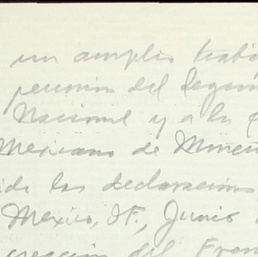 un amplio trab
reunión del Segun
Nacional y a la
Mexicano de Miner
de las declaraciones
México, D.F., Junio
creación del Fren